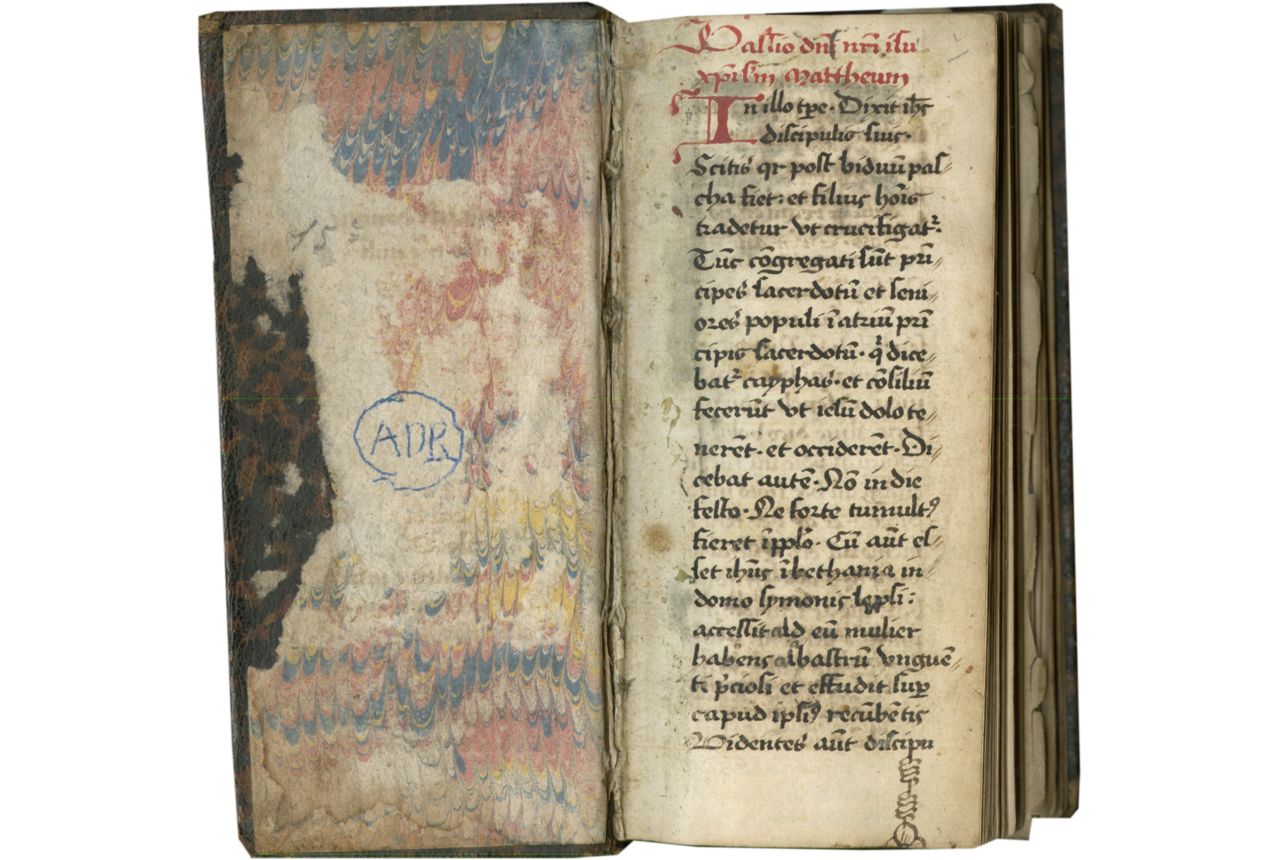 ADR
Passio dnī nrī ihu
xpi scdm Mattheum
In illo tpe. Dixit ihc
discipulis suis.
Scitis qr post biduū pas-
cha fiet: et filius hoīs
tradetur vt crucifigat᷑.
Tūc cōgregati sūt prī
cipes sacerdotū et seni
ores populi ī atriū prī
cipis sacerdotū. q̄ dice
bat᷑ cayphas. et cōsiliū
fecerūt vt iesū dolo te
nerēt. et occiderēt. Di
cebat autē. Nō in die
festo. Ne forte tumultꝰ
fieret ī pplo. Cū aūt es
set ihūs ī bethania in
domo symonis lepsi:
accessit ad eū mulier
habens albastrū vnguē
ti p̄ciosi et effudit sup
capud ipsiꝰ recūbētis
Videntes aūt discipu